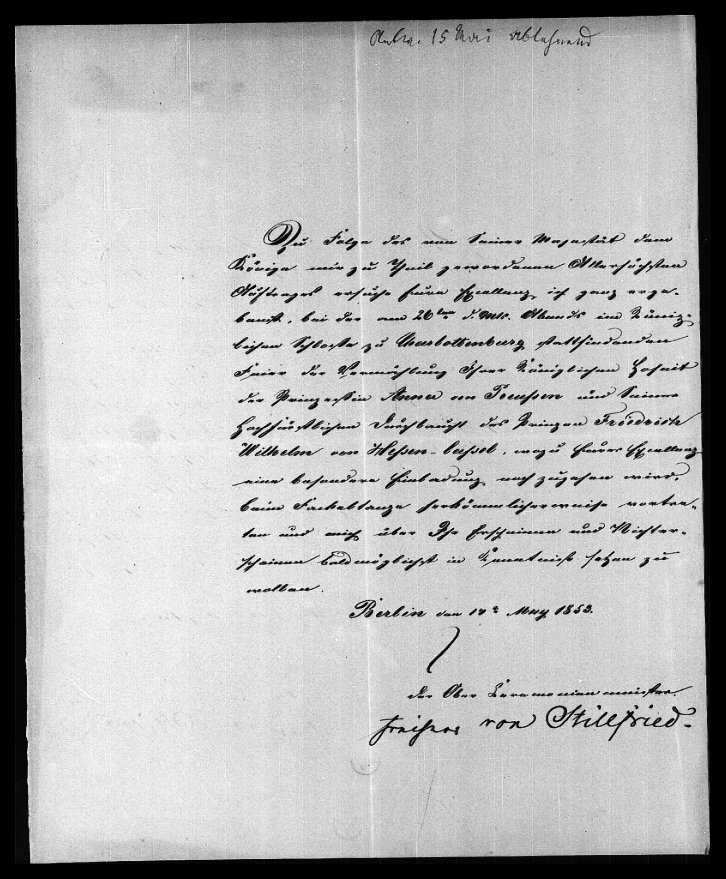 Antw. 15 Mai ablehnend
Zu Folge des von Seiner Majestät dem
Könige mir zu Theil gewordenen Allerhöchsten
Auftrages ersuche Eure Excellenz ich ganz erge-
benst, bei der am 26ten d. Mts. Abends im König-
lichen Schlosse zu Charlottenburg stattfindenden
Feier der Vermählung Ihrer Königlichen Hoheit
der Prinzessin Anna von Preussen und Seiner
Hochfürstlichen Durchlaucht des Prinzen Friedrich
Wilhelm von Hessen-Cassel, wozu Eurer Excellenz
eine besondere Einladung noch zugehen wird,
beim Fackeltanze herkömmlicherweise vortre-
ten und mich über Ihr Erscheinen und Nichter-
scheinen baldmöglichst in Kenntniß setzen zu
wollen.
Berlin den 14n May 1853.
der Ober Ceremonienmeister.
Freiherr von Stillfried.